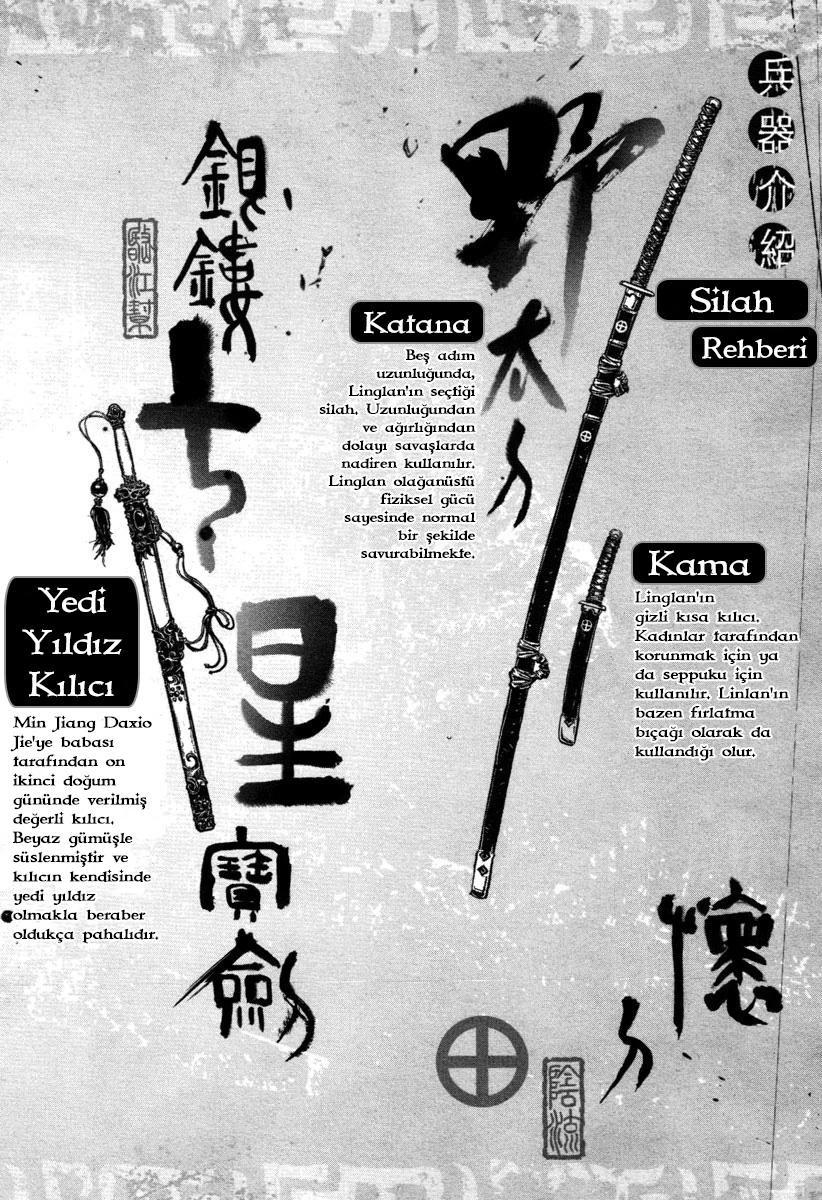 兵器介紹
Silah
Rehberi
野太刀
Katana
Beş adım
uzunluğunda,
Linglan'ın seçtiği
silah. Uzunluğundan
ve ağırlığından
dolayı savaşlarda
nadiren kullanılır.
Linglan olağanüstü
fiziksel gücü
sayesinde normal
bir şekilde
savurabilmekte.
Kama
Linglan'ın
gizli kısa kılıcı.
Kadınlar tarafından
korunmak için ya
da seppuku için
kullanılır. Linlan'ın
bazen fırlatma
bıçağı olarak da
kullandığı olur.
懷刀
銀鏤七星寶劍
臨江幫
Yedi
Yıldız
Kılıcı
Min Jiang Daxio
Jie'ye babası
tarafından on
ikinci doğum
gününde verilmiş
değerli kılıcı.
Beyaz gümüşle
süslenmiştir ve
kılıcın kendisinde
yedi yıldız
olmakla beraber
oldukça pahalıdır.